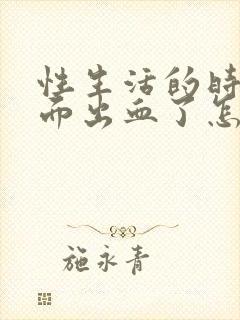 性生活的时
而出血了怎
施永青